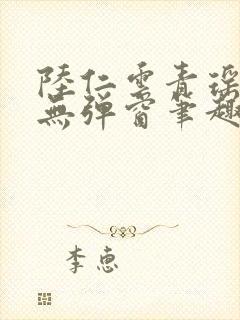 陸仁雲青瑤
無彈窗筆趣
李惠